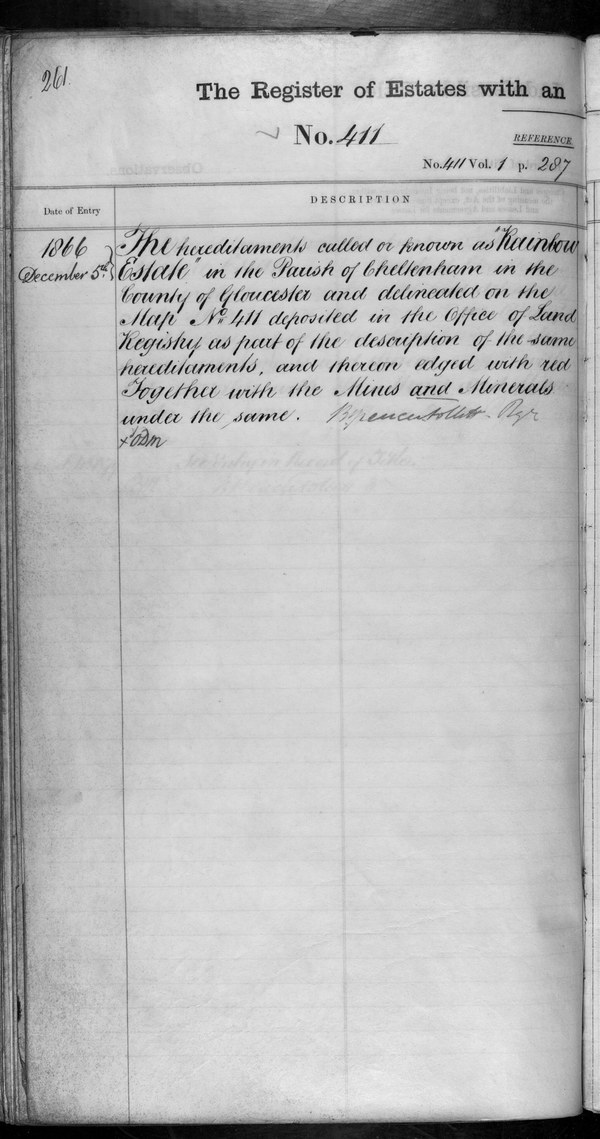 261
The Register of Estates with an
No. 411
REFERENCE
No. 411 Vol. 1 p. 287
Date of Entry
DESCRIPTION
1866
December 5th
The hereditaments called or known as "Rainbow
Estate" in the Parish of Cheltenham in the
County of Gloucester and delineated on the
Map No. 411 deposited in the Office of Land
Registry as part of the description of the same
hereditaments, and thereon edged with red
Together with the Mines and Minerals
under the same. Rgr